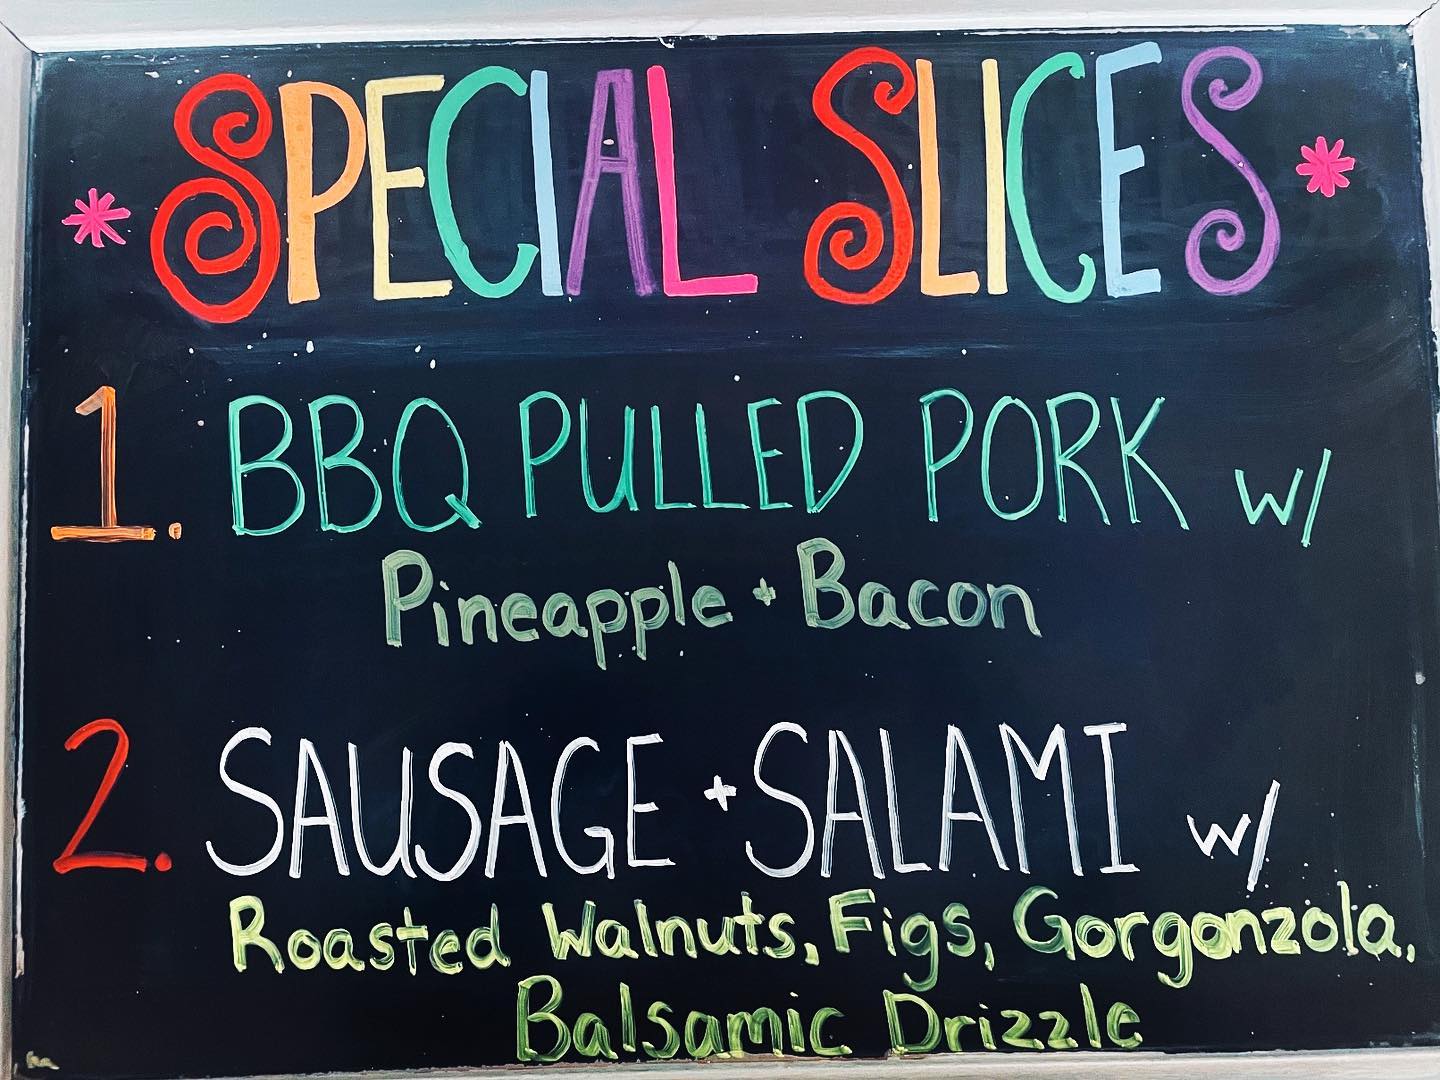 * SPECIAL SLICES *
1. BBQ PULLED PORK w/
Pineapple + Bacon
2. SAUSAGE + SALAMI w/
Roasted Walnuts, Figs, Gorgonzola,
Balsamic Drizzle